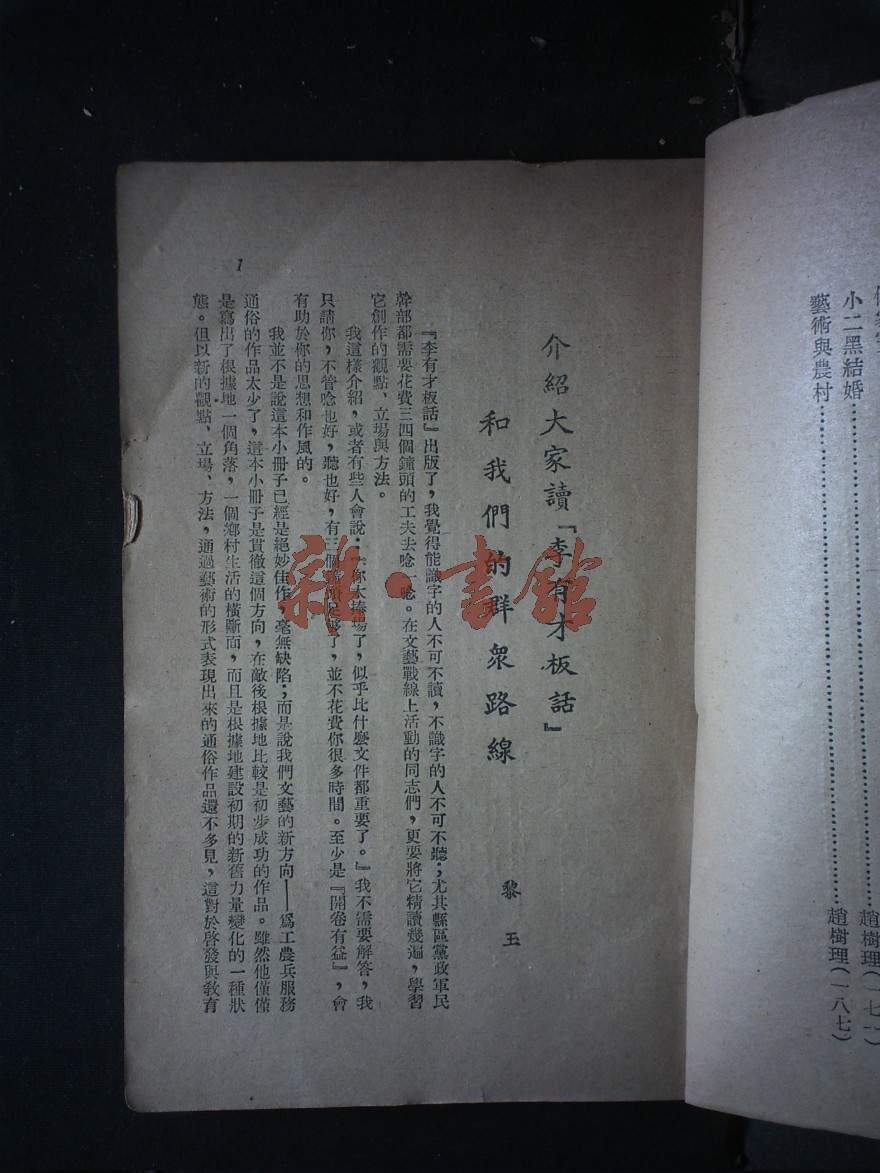 小二黑結婚……趙樹理(一七一)
藝術與農村……趙樹理(一八七)
介紹大家讀『李有才板話』
和我們的群衆路線
黎玉
『李有才板話』出版了,我覺得能識字的人不可不讀,不識字的人不可不聽;尤其縣區黨政軍民
幹部都需要花費三四個鐘頭的工夫去唸一唸。在文藝戰線上活動的同志們,更要將它精讀幾遍,學習
它創作的觀點、立場與方法。
我這樣介紹,或者有些人會說:『你太捧場了,似乎比什麼文件都重要了。』我不需要解答,我
只請你,不管唸也好,聽也好,有三個鐘頭足够了,並不花費你很多時間。至少是『開卷有益』,會
有助於你的思想和作風的。
我並不是說這本小冊子已經是絕妙佳作,毫無缺陷;而是說我們文藝的新方向——爲工農兵服務
通俗的作品太少了,這本小冊子是貫徹這個方向,在敵後根據地比較是初步成功的作品。雖然他僅僅
是寫出了根據地一個角落,一個鄉村生活的橫斷面,而且是根據地建設初期的新舊力量變化的一種狀
態。但以新的觀點、立場、方法,通過藝術的形式表現出來的通俗作品還不多見,這對於啓發與教育
1
雜·書館